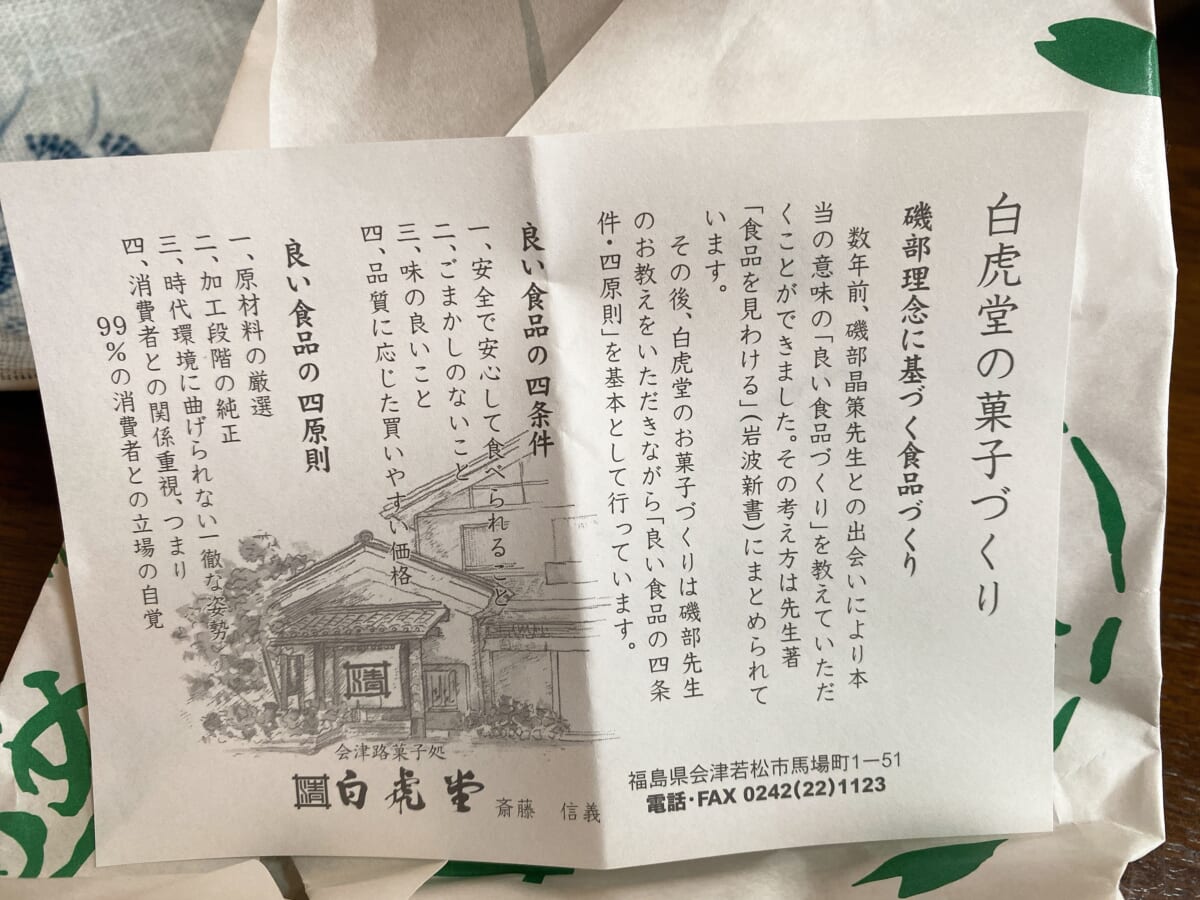 白虎堂の菓子づくり
磯部理念に基づく食品づくり
数年前、磯部晶策先生との出会いにより本
当の意味の「良い食品づくり」を教えていただ
くことができました。その考え方は先生著
「食品を見わける」(岩波新書)にまとめられて
います。
その後、白虎堂のお菓子づくりは磯部先生
のお教えをいただきながら「良い食品の四条
件・四原則」を基本として行っています。
良い食品の四条件
一、安全で安心して食べられること
二、ごまかしのないこと
三、味の良いこと
四、品質に応じた買いやすい価格
良い食品の四原則
一、原材料の厳選
二、加工段階の純正
三、時代環境に曲げられない一徹な姿勢
四、消費者との関係重視、つまり
99%の消費者との立場の自覚
会津路菓子処
白虎堂
斎藤 信義
福島県会津若松市馬場町1−51
電話・FAX 0242(22)1123